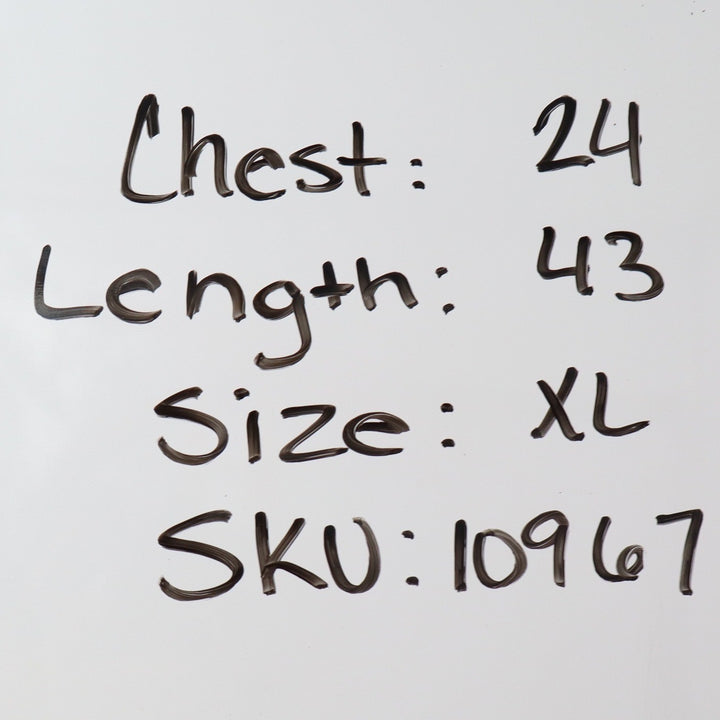 Chest: 24
Length: 43
Size: XL
SKU: 10967